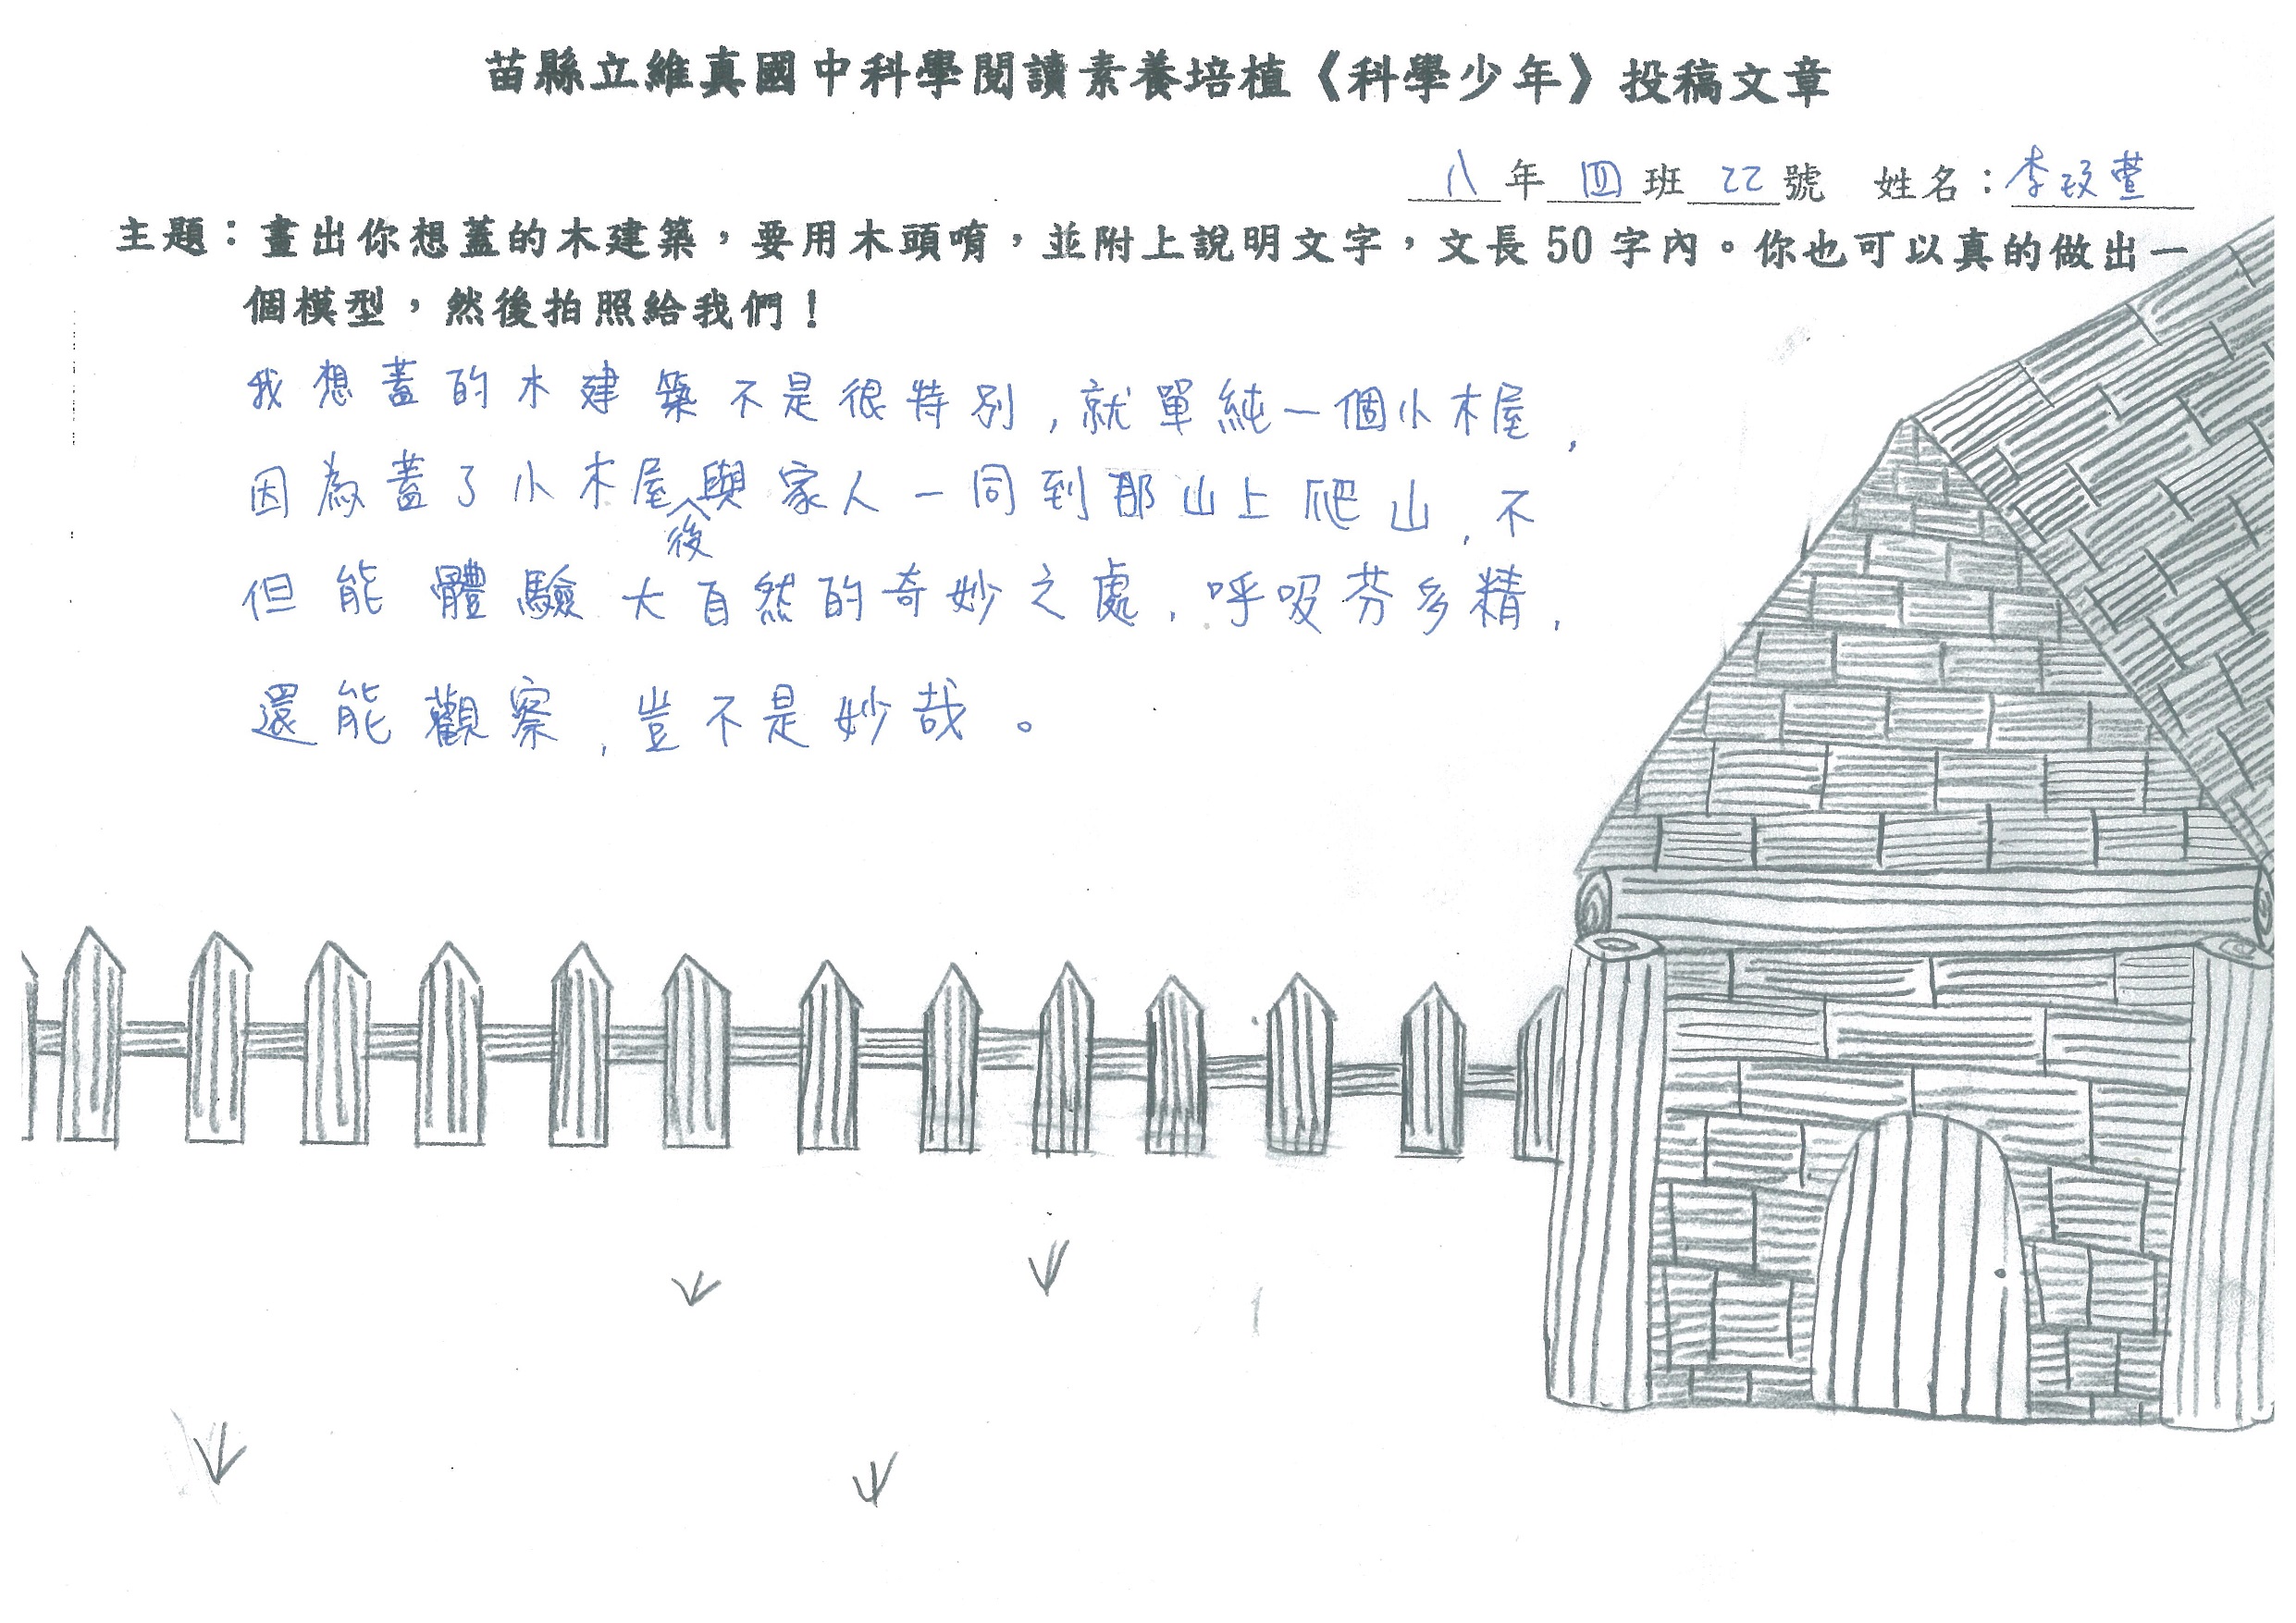 苗縣立維真國中科學閱讀素養培植《科學少年》投稿文章
八年四班22號 姓名：李玟萱
主題：畫出你想蓋的木建築，要用木頭唷，並附上說明文字，文長50字內。你也可以真的做出一
個模型，然後拍照給我們！
我想蓋的木建築不是很特別，就單純一個小木屋，
因為蓋了小木屋後與家人一同到那山上爬山，不
但能體驗大自然的奇妙之處，呼吸芬多精，
還能觀察，豈不是妙哉。